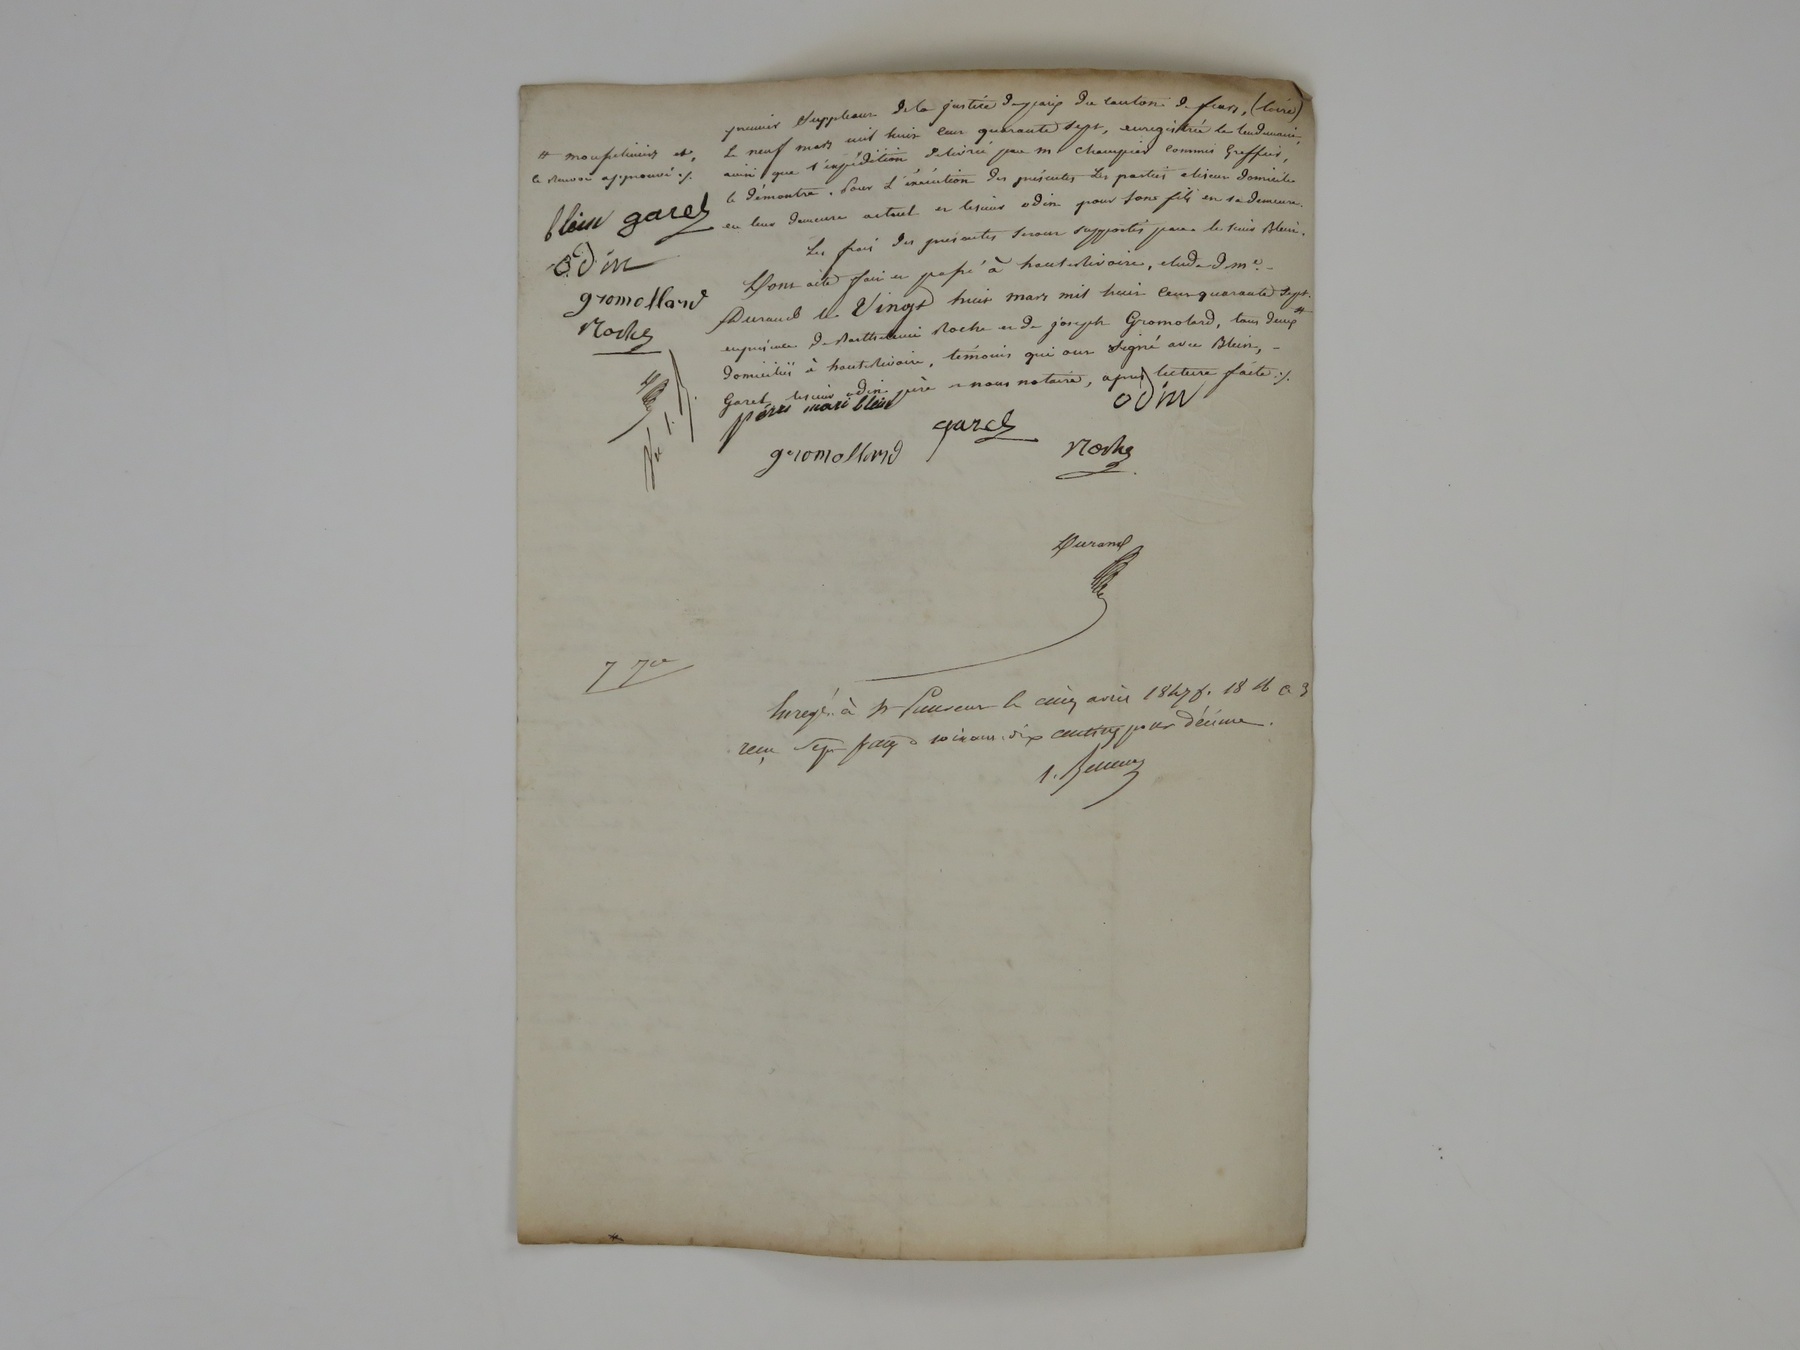 premier Suppléant de la justice de paix du canton de feurs, (Loire)
Le neuf mars mil huit cent quarante Sept, enregistrée le lendemain,
ainsi que l'expédition délivrée par m. Champier commis Greffier,
le démontre. Pour l'exécution des présentes Les parties elisent domicile
en leur demeure actuel et lesieur odin pour Sons fils en sa demeure.
Les frais des présentes Seront supportés par le sieur Blein.
Dont acte fait et passé à hauterivoire, etude d me.
Durand le Vingt huit mars mil huit cent quarante Sept.
en présence de Barthelemi Roche et de joseph Gromolard, tous deux #
domiciliés à hauterivoire, témoins qui ont Signé avec Blein,
Garel, lesieur odin père et nous notaire, après lecture faite ./.
# mousseliniers et,
le renvoi approuvé ./.
blein garel
odin
gromollard
Roche
pierre marie blein
garel
odin
gromollard
Roche
Durand
7 70
Enregé. à St Laurent le cinq avril 1847 f. 18 Vo C 3
reçu Sept francs soixante dix centimes pour décime.